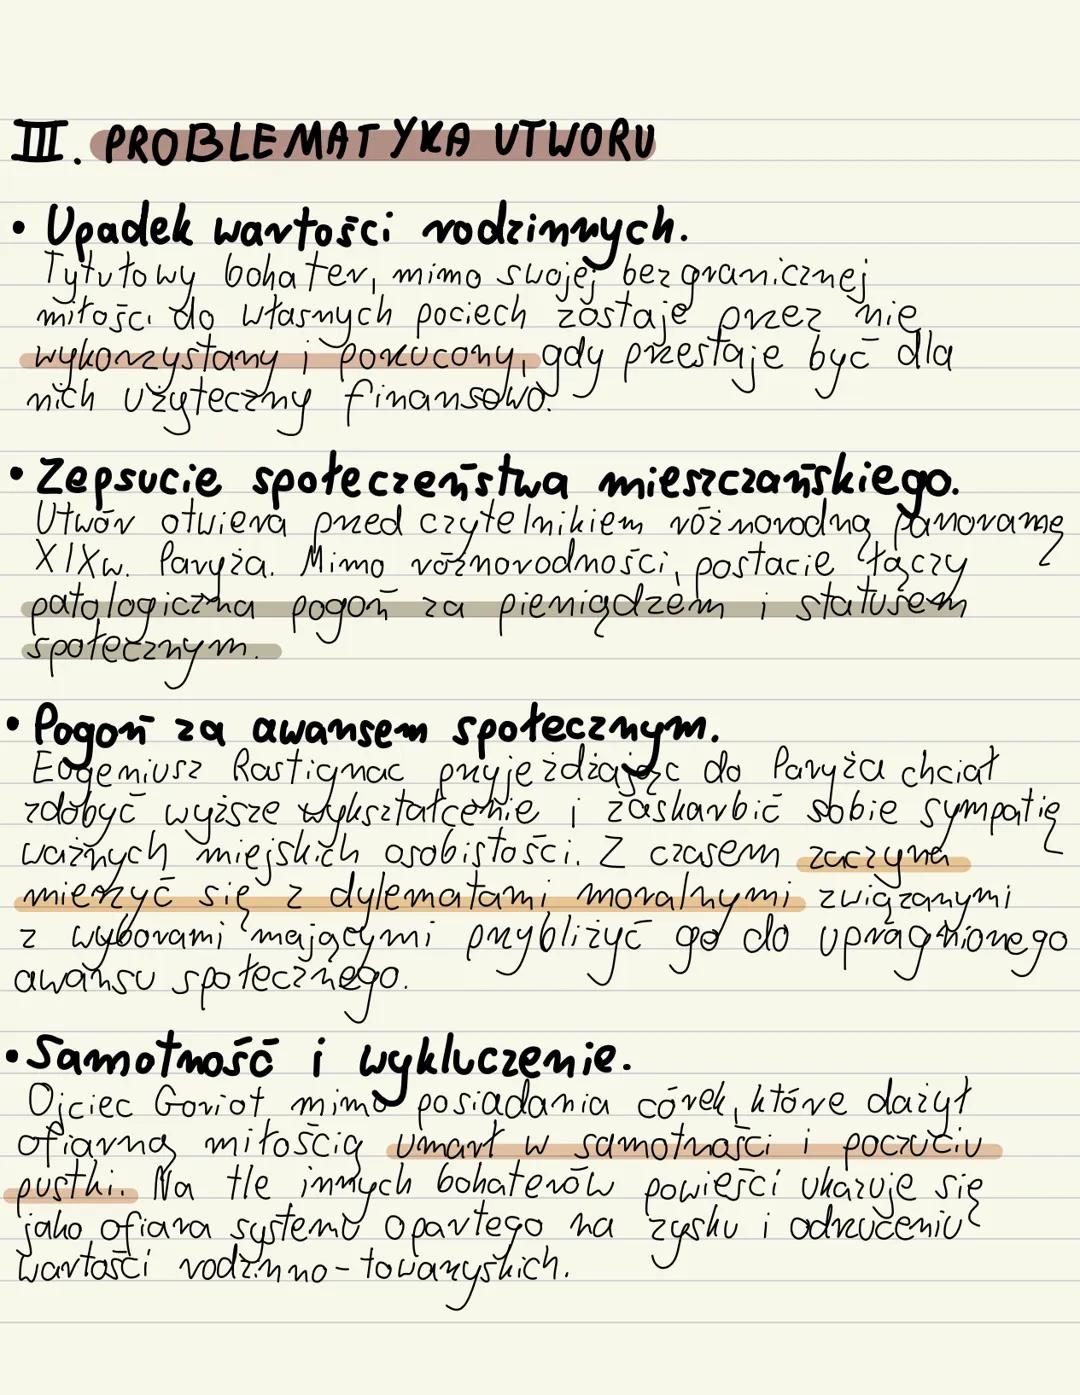 III. PROBLEMATYKA UTWORU
• Upadek wartości rodzinnych.
Tytułowy bohater, mimo swojej bezgranicznej
miłości do własnych pociech zostaje przez nie
wykorzystany i porzucony, gdy przestaje być dla
nich użyteczny finansowo.
• Zepsucie społeczeństwa mieszczańskiego.
Utwór otwiera przed czytelnikiem różnorodną panoramę
XIXw. Paryża. Mimo różnorodności, postacie łączy
patologiczna pogoń za pieniądzem i statusem
społecznym.
• Pogoń za awansem społecznym.
Eugeniusz Rastignac przyjeżdżając do Paryża chciał
zdobyć wyższe wykształcenie i zaskarbić sobie sympatię
ważnych miejskich osobistości. Z czasem zaczyna
mierzyć się z dylematami moralnymi związanymi
z wyborami mającymi przybliżyć go do upragnionego
awansu społecznego.
• Samotność i wykluczenie.
Ojciec Goriot mimo posiadania córek, które darzył
ofiarną miłością umarł w samotności i poczuciu
pustki. Na tle innych bohaterów powieści ukazuje się
jako ofiara systemu opartego na zysku i odrzuceniu
wartości rodzinno-towarzyskich.